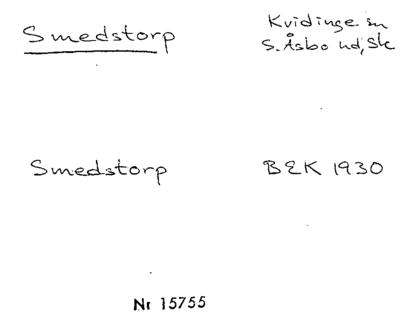 Smedstorp
Kvidinge sn
S. Åsbo hd, Sk
Smedstorp
BEK 1930
Nr 15755